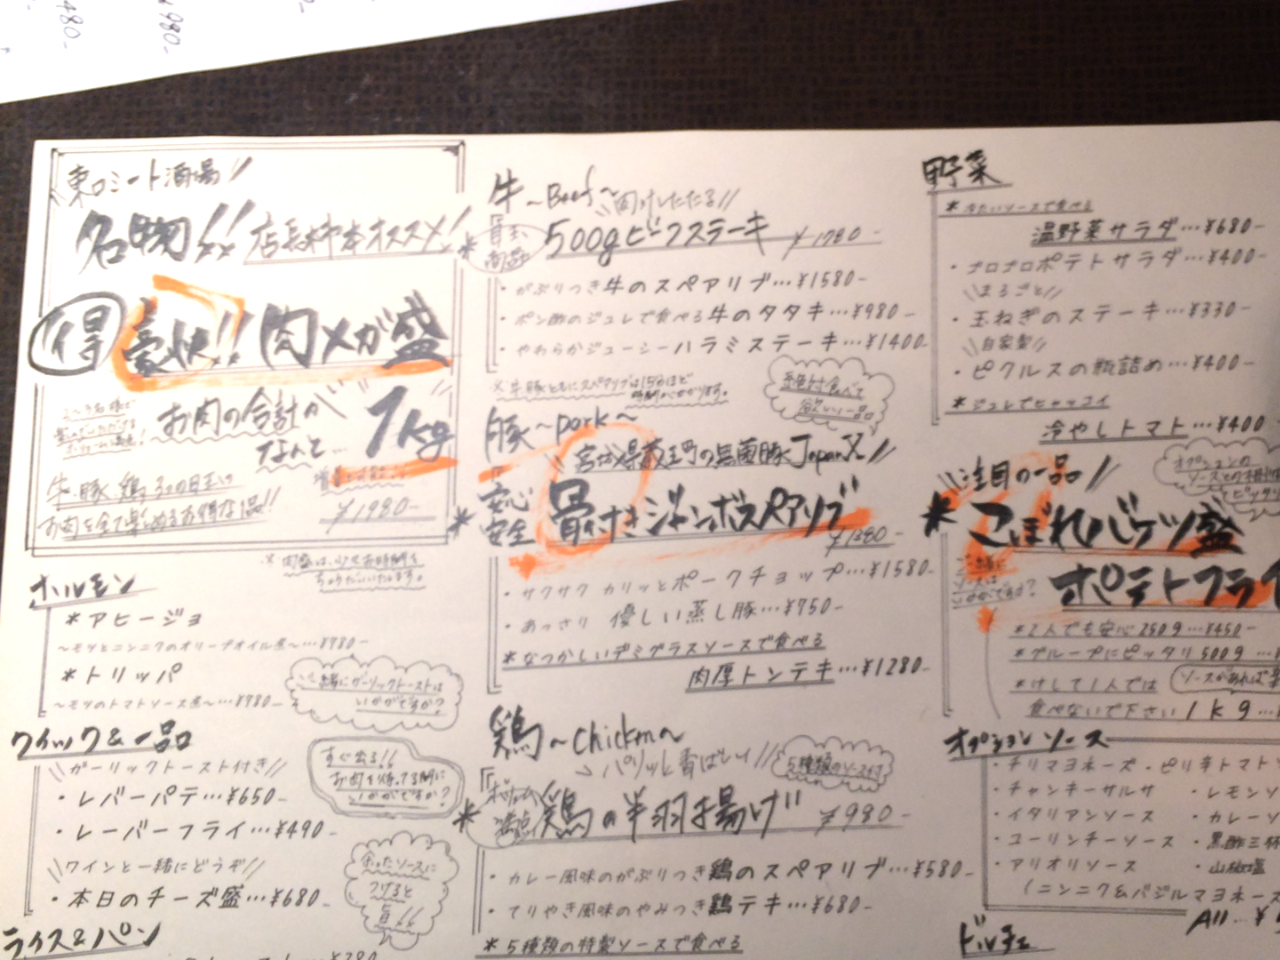 480-
980-
東口ミート酒場!!
名物!! 店長 オススメ!
得 豪快!! 肉メガ盛
お肉の合計の
なんと… 1kg
牛、豚、鶏
お肉を全て楽しめるお得な品!!
¥1980-
ホルモン
*アヒージョ
〜モツとニンニクのオリーブオイル煮〜…¥780-
*トリッパ
〜モツのトマトソース煮〜…¥780-
一緒にガーリックトーストは
いかがですか?
クイック&一品
ガーリックトースト付き
・レバーパテ…¥650-
・レーバーフライ…¥490-
ワインと一緒にどうぞ
・本日のチーズ盛…¥680-
すぐ出る!!
お肉を待ってる間に
いかがですか?
余ったソースに
つけると
旨!!
ライス&パン
牛〜Beef〜
肉汁したたる!!
* 500gビーフステーキ ¥1780-
・がぶりつき牛のスペアリブ…¥1580-
・ポン酢のジュレで食べる牛のタタキ…¥980-
・やわらかジューシーハラミステーキ…¥1400-
※牛豚ともにスペアリブは15分ほど
お時間かかります。
絶対食べて
欲しい一品
豚〜pork〜
宮城県蔵王町の無菌豚JapanX!!
* 安心
安全 骨付きジャンボスペアリブ
¥1380-
・サクサク カリッとポークチョップ…¥1580-
・あっさり 優しい蒸し豚…¥750-
*なつかしいデミグラスソースで食べる
肉厚トンテキ…¥1280-
鶏〜Chicken〜
パリッと香ばしい
5種類のソース付
* ボリューム
満点 鶏の半羽揚げ ¥980-
・カレー風味のがぶりつき鶏のスペアリブ…¥580-
・てりやき風味のやみつき鶏テキ…¥680-
*5種類の特製ソースで食べる
野菜
*冷たいソースで食べる
温野菜サラダ…¥680-
・ゴロゴロポテトサラダ…¥400-
まるごと
・玉ねぎのステーキ…¥330-
自家製
・ピクルスの瓶詰め…¥400-
*ジュレでヒャッコイ
冷やしトマト…¥400
オプションの
注目の一品
* こぼれバケツ盛
ポテトフライ
ご一緒に
ソースは
いかがですか?
*2人でも安心250g…¥450-
*グループにピッタリ500g
*けして1人では
食べないで下さい 1kg
ソースがあれば
オプションソース
・チリマヨネーズ ・ピリ辛トマト
・チャンキーサルサ ・レモンソ
・イタリアンソース ・カレーソ
・ユーリンチーソース ・黒酢三杯
・アリオリソース ・山椒塩
(ニンニク&バジルマヨネーズ
All
ドルチェ